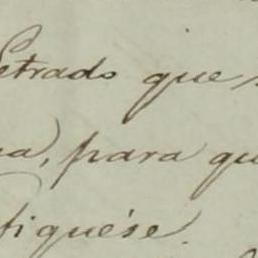 Letrado que
a, para qu
tiquése.